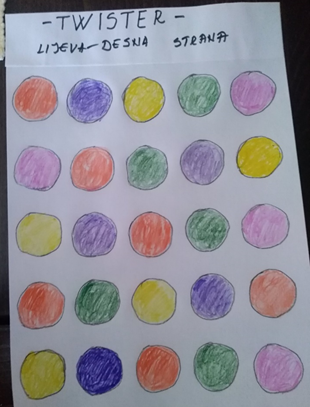 -TWISTER-
LIJEVA-DESNA STRANA